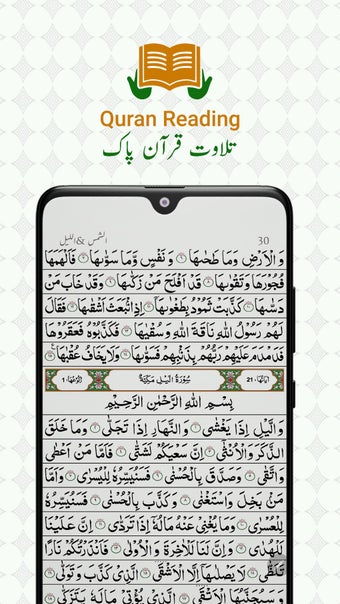 Quran Reading
تلاوت قرآن پاک
الشمس & الليل
30
وَالْاَرْضِ وَمَا طَحٰىهَا ۝ وَنَفْسٍ وَّمَا سَوّٰىهَا ۝ فَاَلْهَمَهَا
فُجُوْرَهَا وَتَقْوٰىهَا ۝ قَدْ اَفْلَحَ مَنْ زَكّٰىهَا ۝ وَقَدْ خَابَ مَنْ
دَسّٰىهَا ۝ كَذَّبَتْ ثَمُوْدُ بِطَغْوٰىهَا ۝ اِذِ انْۢبَعَثَ اَشْقٰىهَا ۝ فَقَالَ
لَهُمْ رَسُوْلُ اللّٰهِ نَاقَةَ اللّٰهِ وَسُقْيٰهَا ۝ فَكَذَّبُوْهُ فَعَقَرُوْهَا
فَدَمْدَمَ عَلَيْهِمْ رَبُّهُمْ بِذَنْۢبِهِمْ فَسَوّٰىهَا ۝ وَلَا يَخَافُ عُقْبٰهَا ۝
اٰيَاتُهَا 21 سُوْرَةُ الَّيْلِ مَكِّيَّةٌ رُكُوْعُهَا 1
بِسْمِ اللّٰهِ الرَّحْمٰنِ الرَّحِيْمِ
وَالَّيْلِ اِذَا يَغْشٰى ۝ وَالنَّهَارِ اِذَا تَجَلّٰى ۝ وَمَا خَلَقَ
الذَّكَرَ وَالْاُنْثٰى ۝ اِنَّ سَعْيَكُمْ لَشَتّٰى ۝ فَاَمَّا مَنْ اَعْطٰى
وَاتَّقٰى ۝ وَصَدَّقَ بِالْحُسْنٰى ۝ فَسَنُيَسِّرُهٗ لِلْيُسْرٰى ۝ وَاَمَّا
مَنْۢ بَخِلَ وَاسْتَغْنٰى ۝ وَكَذَّبَ بِالْحُسْنٰى ۝ فَسَنُيَسِّرُهٗ
لِلْعُسْرٰى ۝ وَمَا يُغْنِيْ عَنْهُ مَالُهٗٓ اِذَا تَرَدّٰى ۝ اِنَّ عَلَيْنَا
لَلْهُدٰى ۝ وَاِنَّ لَنَا لَلْاٰخِرَةَ وَالْاُوْلٰى ۝ فَاَنْذَرْتُكُمْ نَارًا
تَلَظّٰى ۝ لَا يَصْلٰىهَآ اِلَّا الْاَشْقَى ۝ الَّذِيْ كَذَّبَ وَتَوَلّٰى ۝
وَسَيُجَنَّبُهَا الْاَتْقَى ۝ الَّذِيْ يُؤْتِيْ مَالَهٗ يَتَزَكّٰى ۝